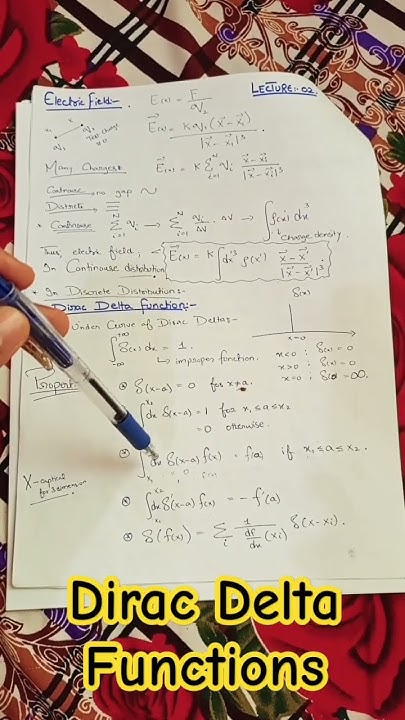 Electric field:-
E(x) = F / q₂
LECTURE:- 02
x₁ x q₂ Test charge
q₁
E⃗(x) = K q₁ (x⃗ - x⃗₁) / |x⃗ - x⃗₁|³
Many Charges:
E⃗(x) = K Σᴺᵢ₌₁ qᵢ (x⃗ - x⃗ᵢ) / |x⃗ - x⃗ᵢ|³
Continouse → no gap
Discrete →
* Continouse Σᴺᵢ₌₁ qᵢ → Σᴺᵢ₌₁ qᵢ/ΔV · ΔV → ∫ ρ(x') dx'³
↳ charge density.
Thus, electric field
In Continouse distribution
E⃗(x) = K ∫ dx'³ ρ(x') (x⃗ - x⃗ᵢ) / |x⃗ - x⃗ᵢ|³
* In Discrete Distribution:-
Dirac Delta function:-
δ(x)
x=0
Under Curve of Dirac Delta:-
∫ δ(x) dx = 1.
↳ improper function.
x<0 : δ(x) = 0
x>0 : δ(x) = 0
x=0 : δ(x) = ∞.
δ(x-a) = 0 for x≠a.
∫ dx δ(x-a) = 1 for x₁ ≤ a ≤ x₂
= 0 otherwise.
∫ dx δ(x-a) f(x) = f(a) if x₁ ≤ a ≤ x₂.
X-capital for 3 dimension
∫ dx δ'(x-a) f(x) = - f'(a)
δ(f(x)) = Σᵢ 1 / (df/dx (xᵢ)) δ(x-xᵢ).
Dirac Delta
Functions